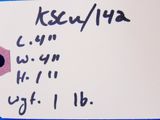 KSCU/142
L. 4"
W. 4"
H. 1"
wgt. 1 lb.